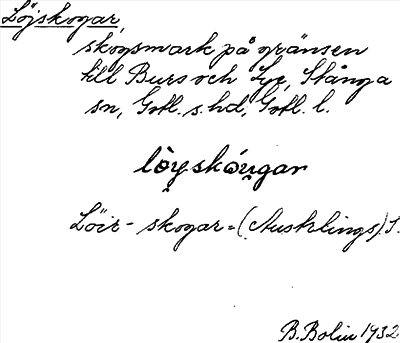 Löjskogar,
skogsmark på gränsen
till Burs och Lye, Stånga
sn, Gotl. s. hd, Gotl. l.
lòy̯skóu̯gar
Löir- skogar = (Ausklings). S.
B. Bolin 1932